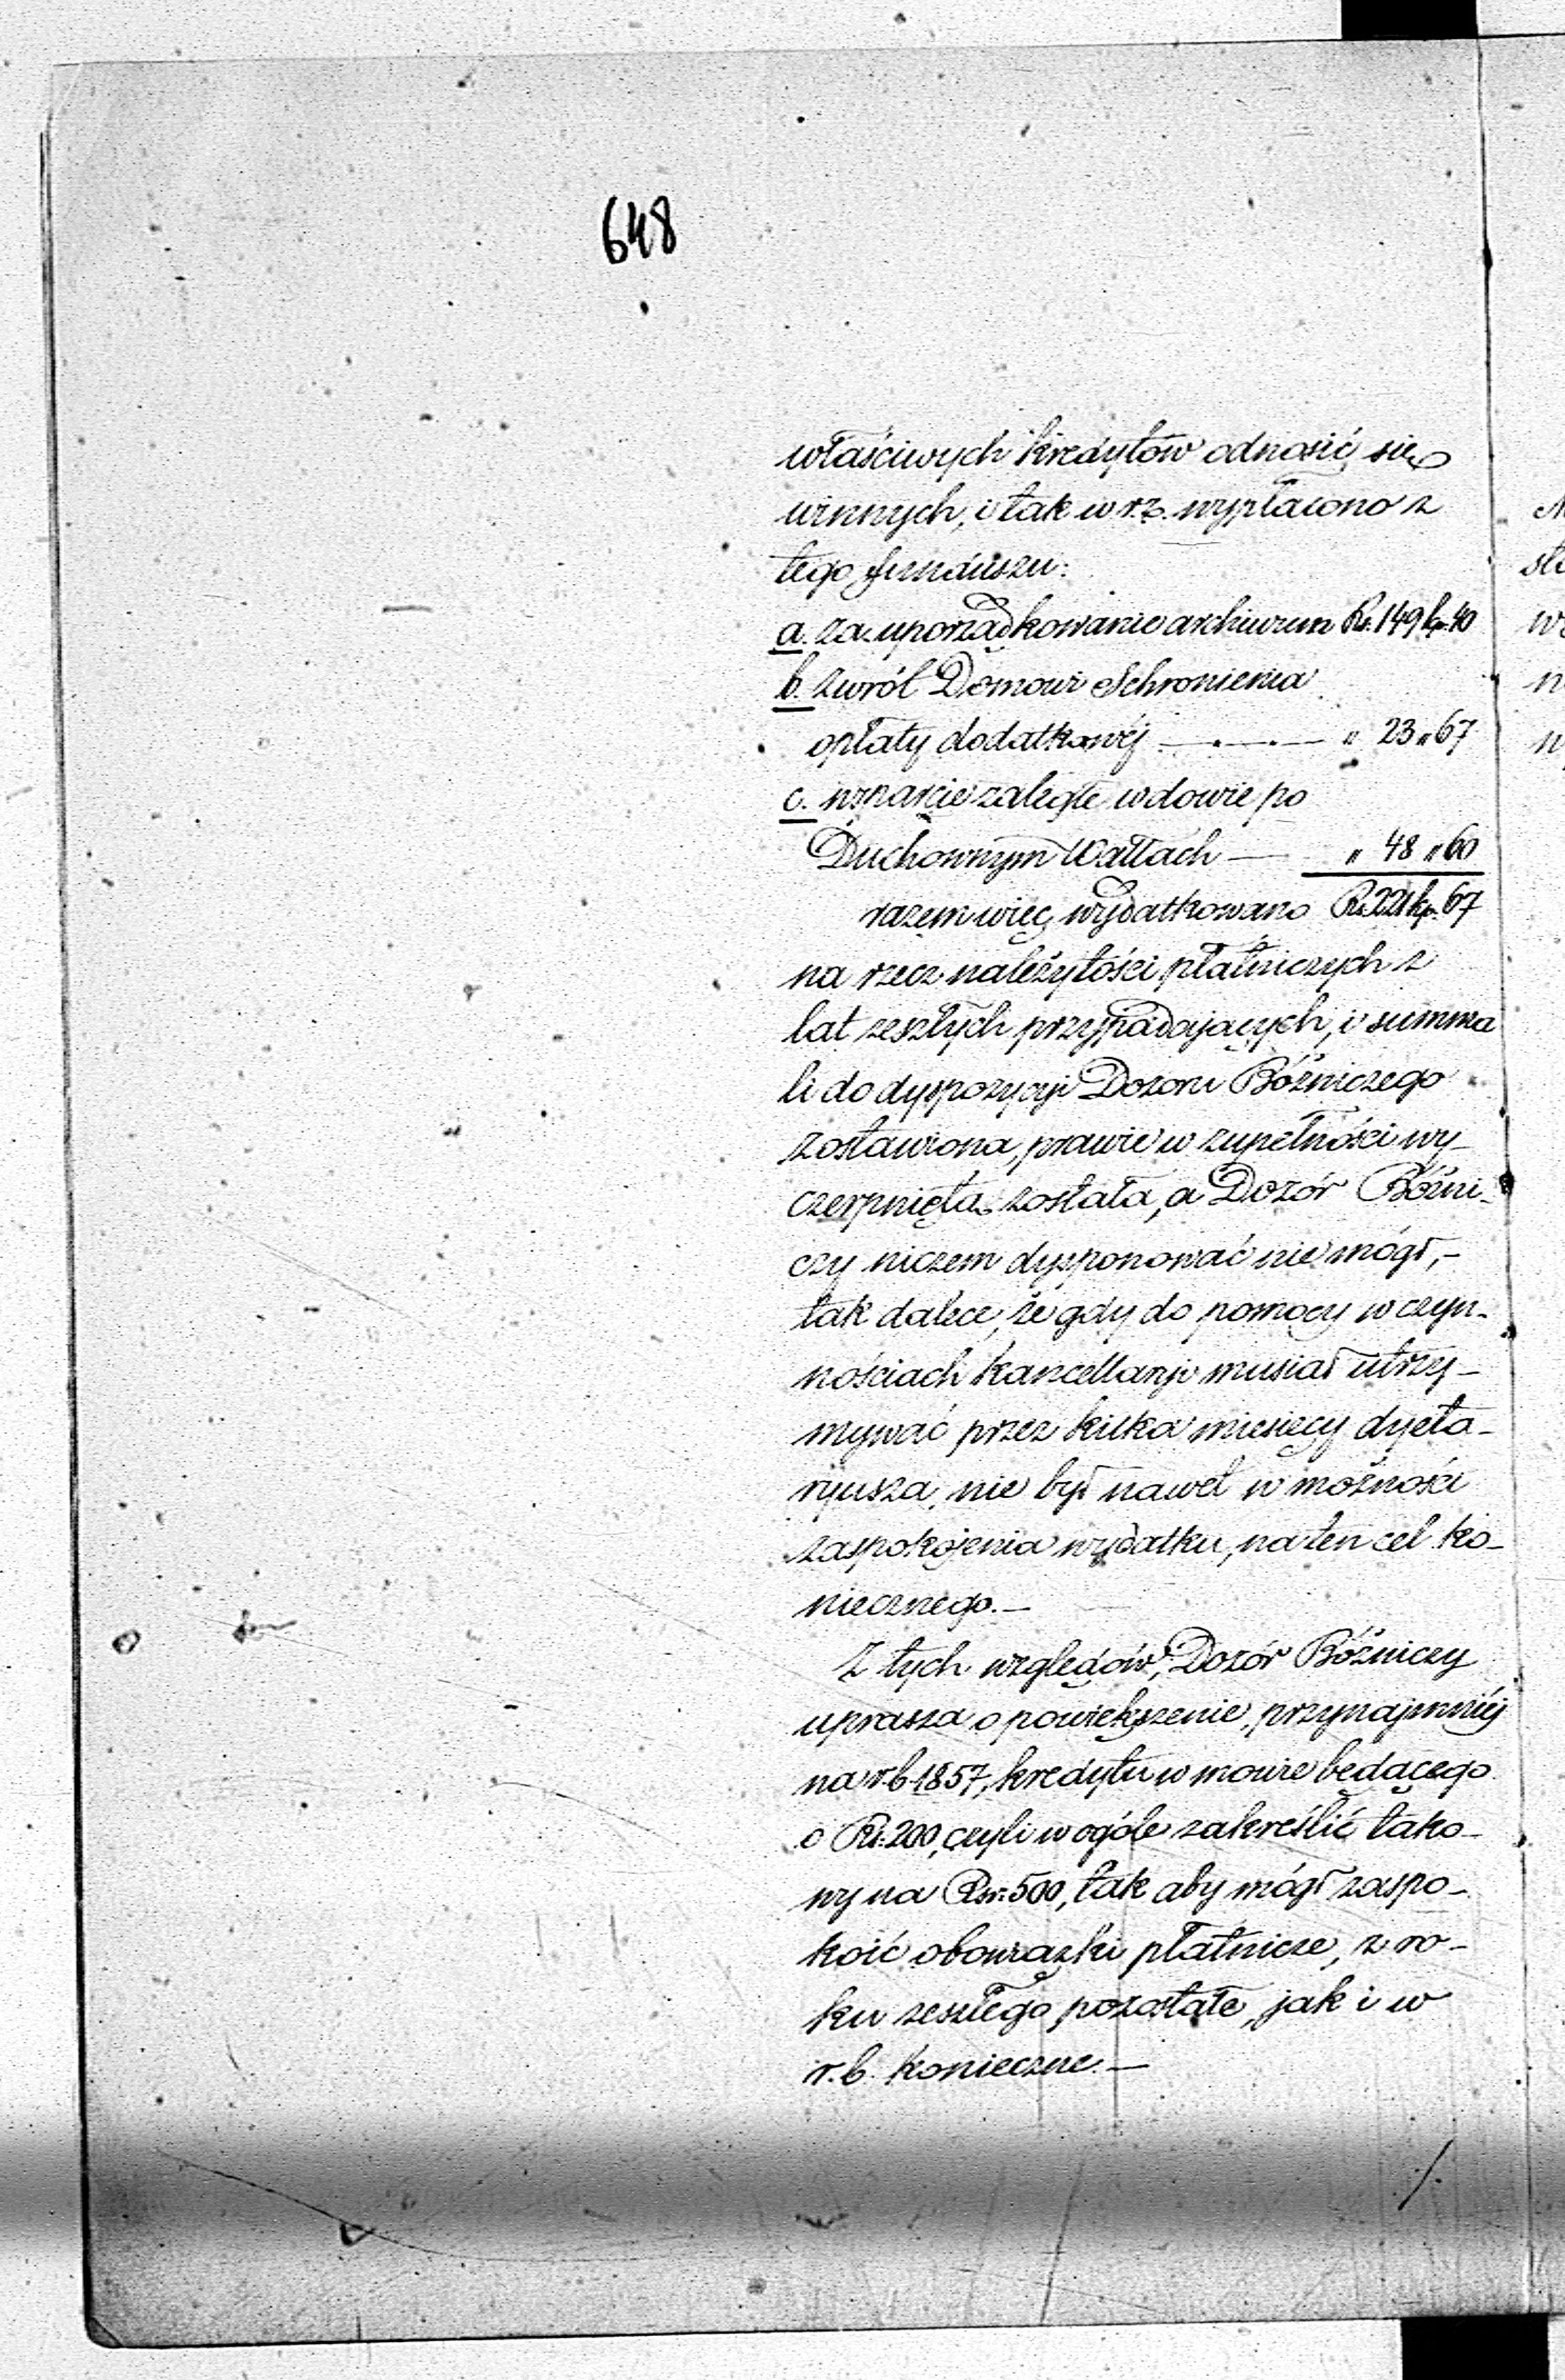 648
właściwych kredytów odnosić się
winnych, i tak w r. z. wypłacono z
tego funduszu:
a. za uporządkowanie archiwum Rs. 149 kp. 40
b. zwrót Domowi Schronienia
opłaty dodatkowéj — " 23 " 67
c. wsparcie zaległe wdowie po
Duchownym Wallach — " 48 " 60
razem więc wydatkowano Rs. 221 kp. 67
na rzecz należytości płatniczych z
lat zeszłych przypadających, i summa
li do dyspozycyi Dozoru Bóżniczego
zostawiona, prawie w zupełności wy-
czerpnięta została, a Dozór Bóżni-
czy niczem dysponować nie mógł, -
tak dalece, że gdy do pomocy w czyn-
nościach kancellaryi musiał utrzy-
mywać przez kilka miesięcy dyeta-
ryusza, nie był nawet w możności
zaspokojenia wydatku, na ten cel ko-
niecznego. —
Z tych względów, Dozór Bóżniczy
uprasza o powiększenie, przynajmniéj
na r. b. 1857, kredytu w mowie będącego
o Rs. 200, czyli w ogóle zakreślić tako-
wy na Rsr. 500, tak aby mógł zaspo-
koić obowiązki płatnicze, z ro-
ku zeszłego pozostałe, jak i w
r. b. konieczne. —
./.